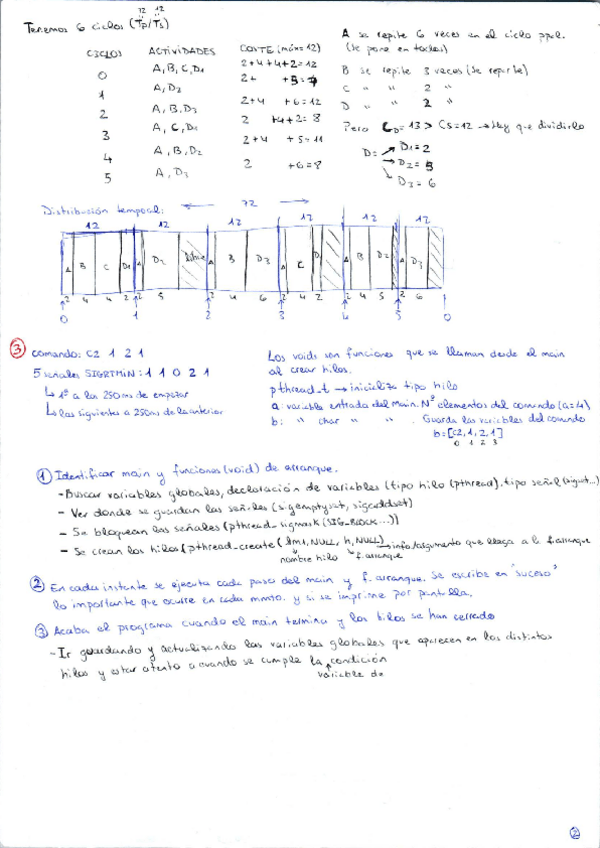 Tenemos 6 ciclos (Tp/Ts)
72 12
CICLOS ACTIVIDADES COSTE (máx=12)
0 A, B, C, D1 2+4+4+2=12
1 A, D2 2+ +5=7
2 A, B, D3 2+4 +6=12
3 A, C, D1 2 +4+2=8
4 A, B, D2 2+4 +5=11
5 A, D3 2 +6=8
A se repite 6 veces en el ciclo ppal.
(se pone en todos)
B se repite 3 veces (se reparte)
C " " 2 "
D " " 2 "
Pero CD=13 > Cs=12 → Hay que dividirlo
D= D1=2
D2=5
D3=6
Distribución temporal: 72
12 12 12 12 12 12
A B C D1 A D2 libre A B D3 A C D1 A B D2 A D3
2 4 4 2 2 5 2 4 6 2 4 2 2 4 5 2 6
0 1 2 3 4 5 0
3 comando: C2 1 2 1
5 señales SIGRTMIN: 1 1 0 2 1
↳ 1ª a los 250ms de empezar
↳ las siguientes a 250ms de la anterior
Los voids son funciones que se llaman desde el main
al crear hilos.
pthread_t → inicializa tipo hilo
a: variable entrada del main. Nº elementos del comando (a=4)
b: " char " " . Guarda las variables del comando
b=[C2,1,2,1]
0 1 2 3
1 Identificar main y funciones (void) de arranque.
- Buscar variables globales, declaración de variables (tipo hilo (pthread). tipo señal (sigset...)
- Ver donde se guardan las señales (sigemptyset, sigaddset)
- Se bloquean las señales (pthread_sigmask (SIG_BLOCK...))
- Se crean los hilos (pthread_create (&m1, NULL, h, NULL) → info/argumento que llega a la f.arranque
nombre hilo f.arranque
2 En cada instante se ejecuta cada paso del main y f. arranque. Se escribe en "suceso"
lo importante que ocurre en cada mmto. y si se imprime por pantalla.
3 Acaba el programa cuando el main termina y los hilos se han cerrado
- Ir guardando y actualizando las variables globales que aparecen en los distintos
hilos y estar atento a cuando se cumple la condición
variable de
2